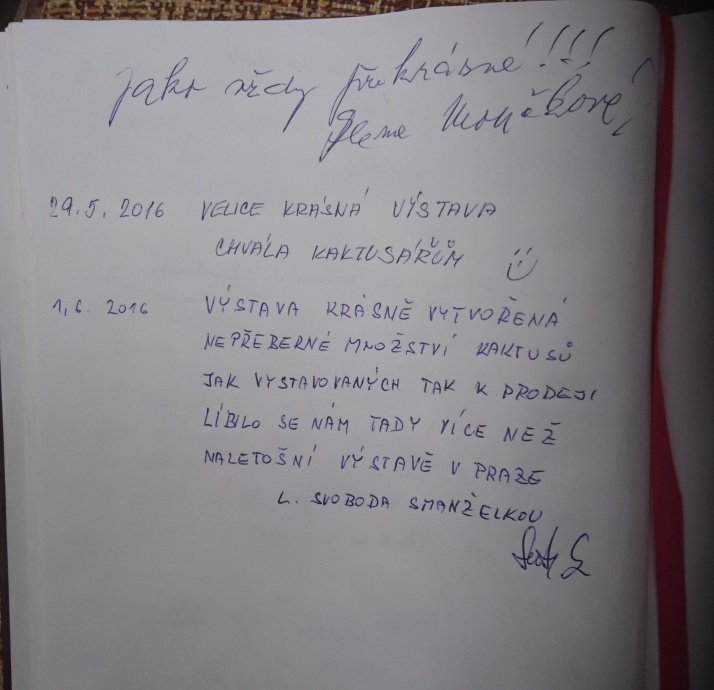 Jako vždy překrásné!!!
29.5. 2016 VELICE KRÁSNÁ VÝSTAVA
CHVÁLA KAKTUSÁŘŮM
1,6. 2016 VÝSTAVA KRÁSNĚ VYTVOŘENÁ
NEPŘEBERNÉ MNOŽSTVÍ KAKTUSŮ
JAK VYSTAVOVANÝCH TAK K PRODEJI
LÍBILO SE NÁM TADY VÍCE NEŽ
NALETOŠNÍ VÝSTAVĚ V PRAZE
L. SVOBODA SMANŽELKOU